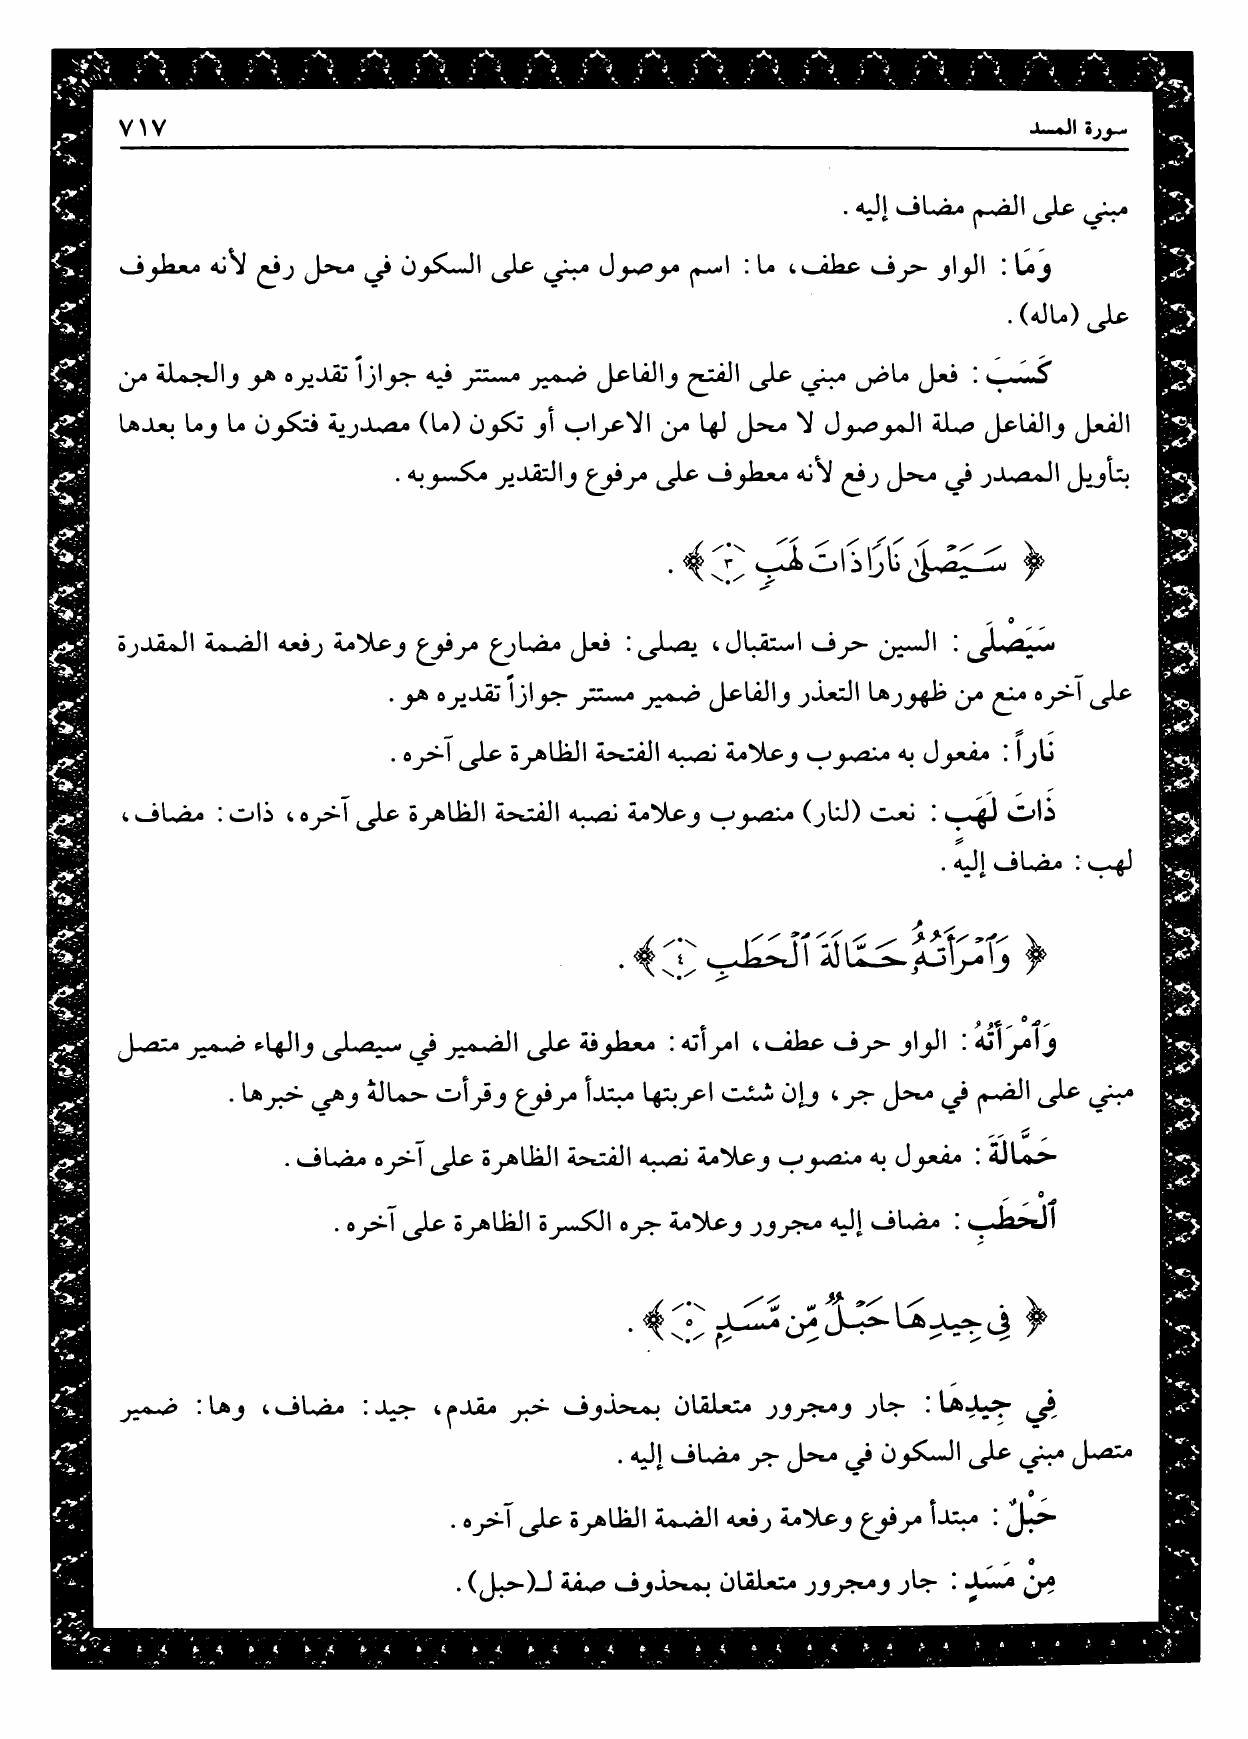 سورة المسد ٧١٧
مبني على الضم مضاف إليه .
وَمَا : الواو حرف عطف، ما : اسم موصول مبني على السكون في محل رفع لأنه معطوف
على (ماله) .
كَسَبَ : فعل ماض مبني على الفتح والفاعل ضمير مستتر فيه جوازاً تقديره هو والجملة من
الفعل والفاعل صلة الموصول لا محل لها من الاعراب أو تكون (ما) مصدرية فتكون ما وما بعدها
بتأويل المصدر في محل رفع لأنه معطوف على مرفوع والتقدير مكسوبه .
﴿ سَيَصْلَىٰ نَارًا ذَاتَ لَهَبٍ ٣ ﴾ .
سَيَصْلَى : السين حرف استقبال، يصلى : فعل مضارع مرفوع وعلامة رفعه الضمة المقدرة
على آخره منع من ظهورها التعذر والفاعل ضمير مستتر جوازاً تقديره هو .
نَاراً : مفعول به منصوب وعلامة نصبه الفتحة الظاهرة على آخره .
ذَاتَ لَهَبٍ : نعت (لنار) منصوب وعلامة نصبه الفتحة الظاهرة على آخره، ذات : مضاف،
لهب : مضاف إليه .
﴿ وَٱمْرَأَتُهُۥ حَمَّالَةَ ٱلْحَطَبِ ٤ ﴾ .
وَٱمْرَأَتُهُ : الواو حرف عطف، امرأته : معطوفة على الضمير في سيصلى والهاء ضمير متصل
مبني على الضم في محل جر، وإن شئت اعربتها مبتدأ مرفوع وقرأت حمالةُ وهي خبرها .
حَمَّالَةَ : مفعول به منصوب وعلامة نصبه الفتحة الظاهرة على آخره مضاف .
ٱلْحَطَبِ : مضاف إليه مجرور وعلامة جره الكسرة الظاهرة على آخره .
﴿ فِى جِيدِهَا حَبْلٌ مِّن مَّسَدٍۭ ٥ ﴾ .
فِي جِيدِهَا : جار ومجرور متعلقان بمحذوف خبر مقدم، جيد : مضاف، وها : ضمير
متصل مبني على السكون في محل جر مضاف إليه .
حَبْلٌ : مبتدأ مرفوع وعلامة رفعه الضمة الظاهرة على آخره .
مِنْ مَسَدٍ : جار ومجرور متعلقان بمحذوف صفة لـ(حبل) .